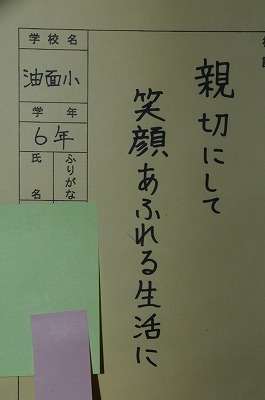 親切にして
笑顔あふれる生活に
学校名
油面小
学年
6年
ふりがな
氏名